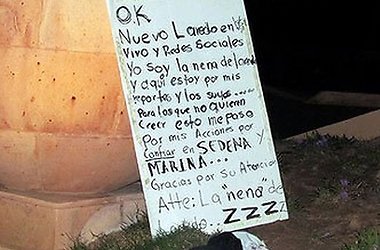 O.K
Nuevo Laredo en
Vivo y Redes Sociales
Yo soy la nena de
y aqui estoy por mis
reportes y los suyos...
Para los que no quieran
creer esto me paso
Por mis Acciones por
Confiar en SEDENA y
MARINA...
Gracias por su Atencion
Atte: La "nena" de
ZZZZ